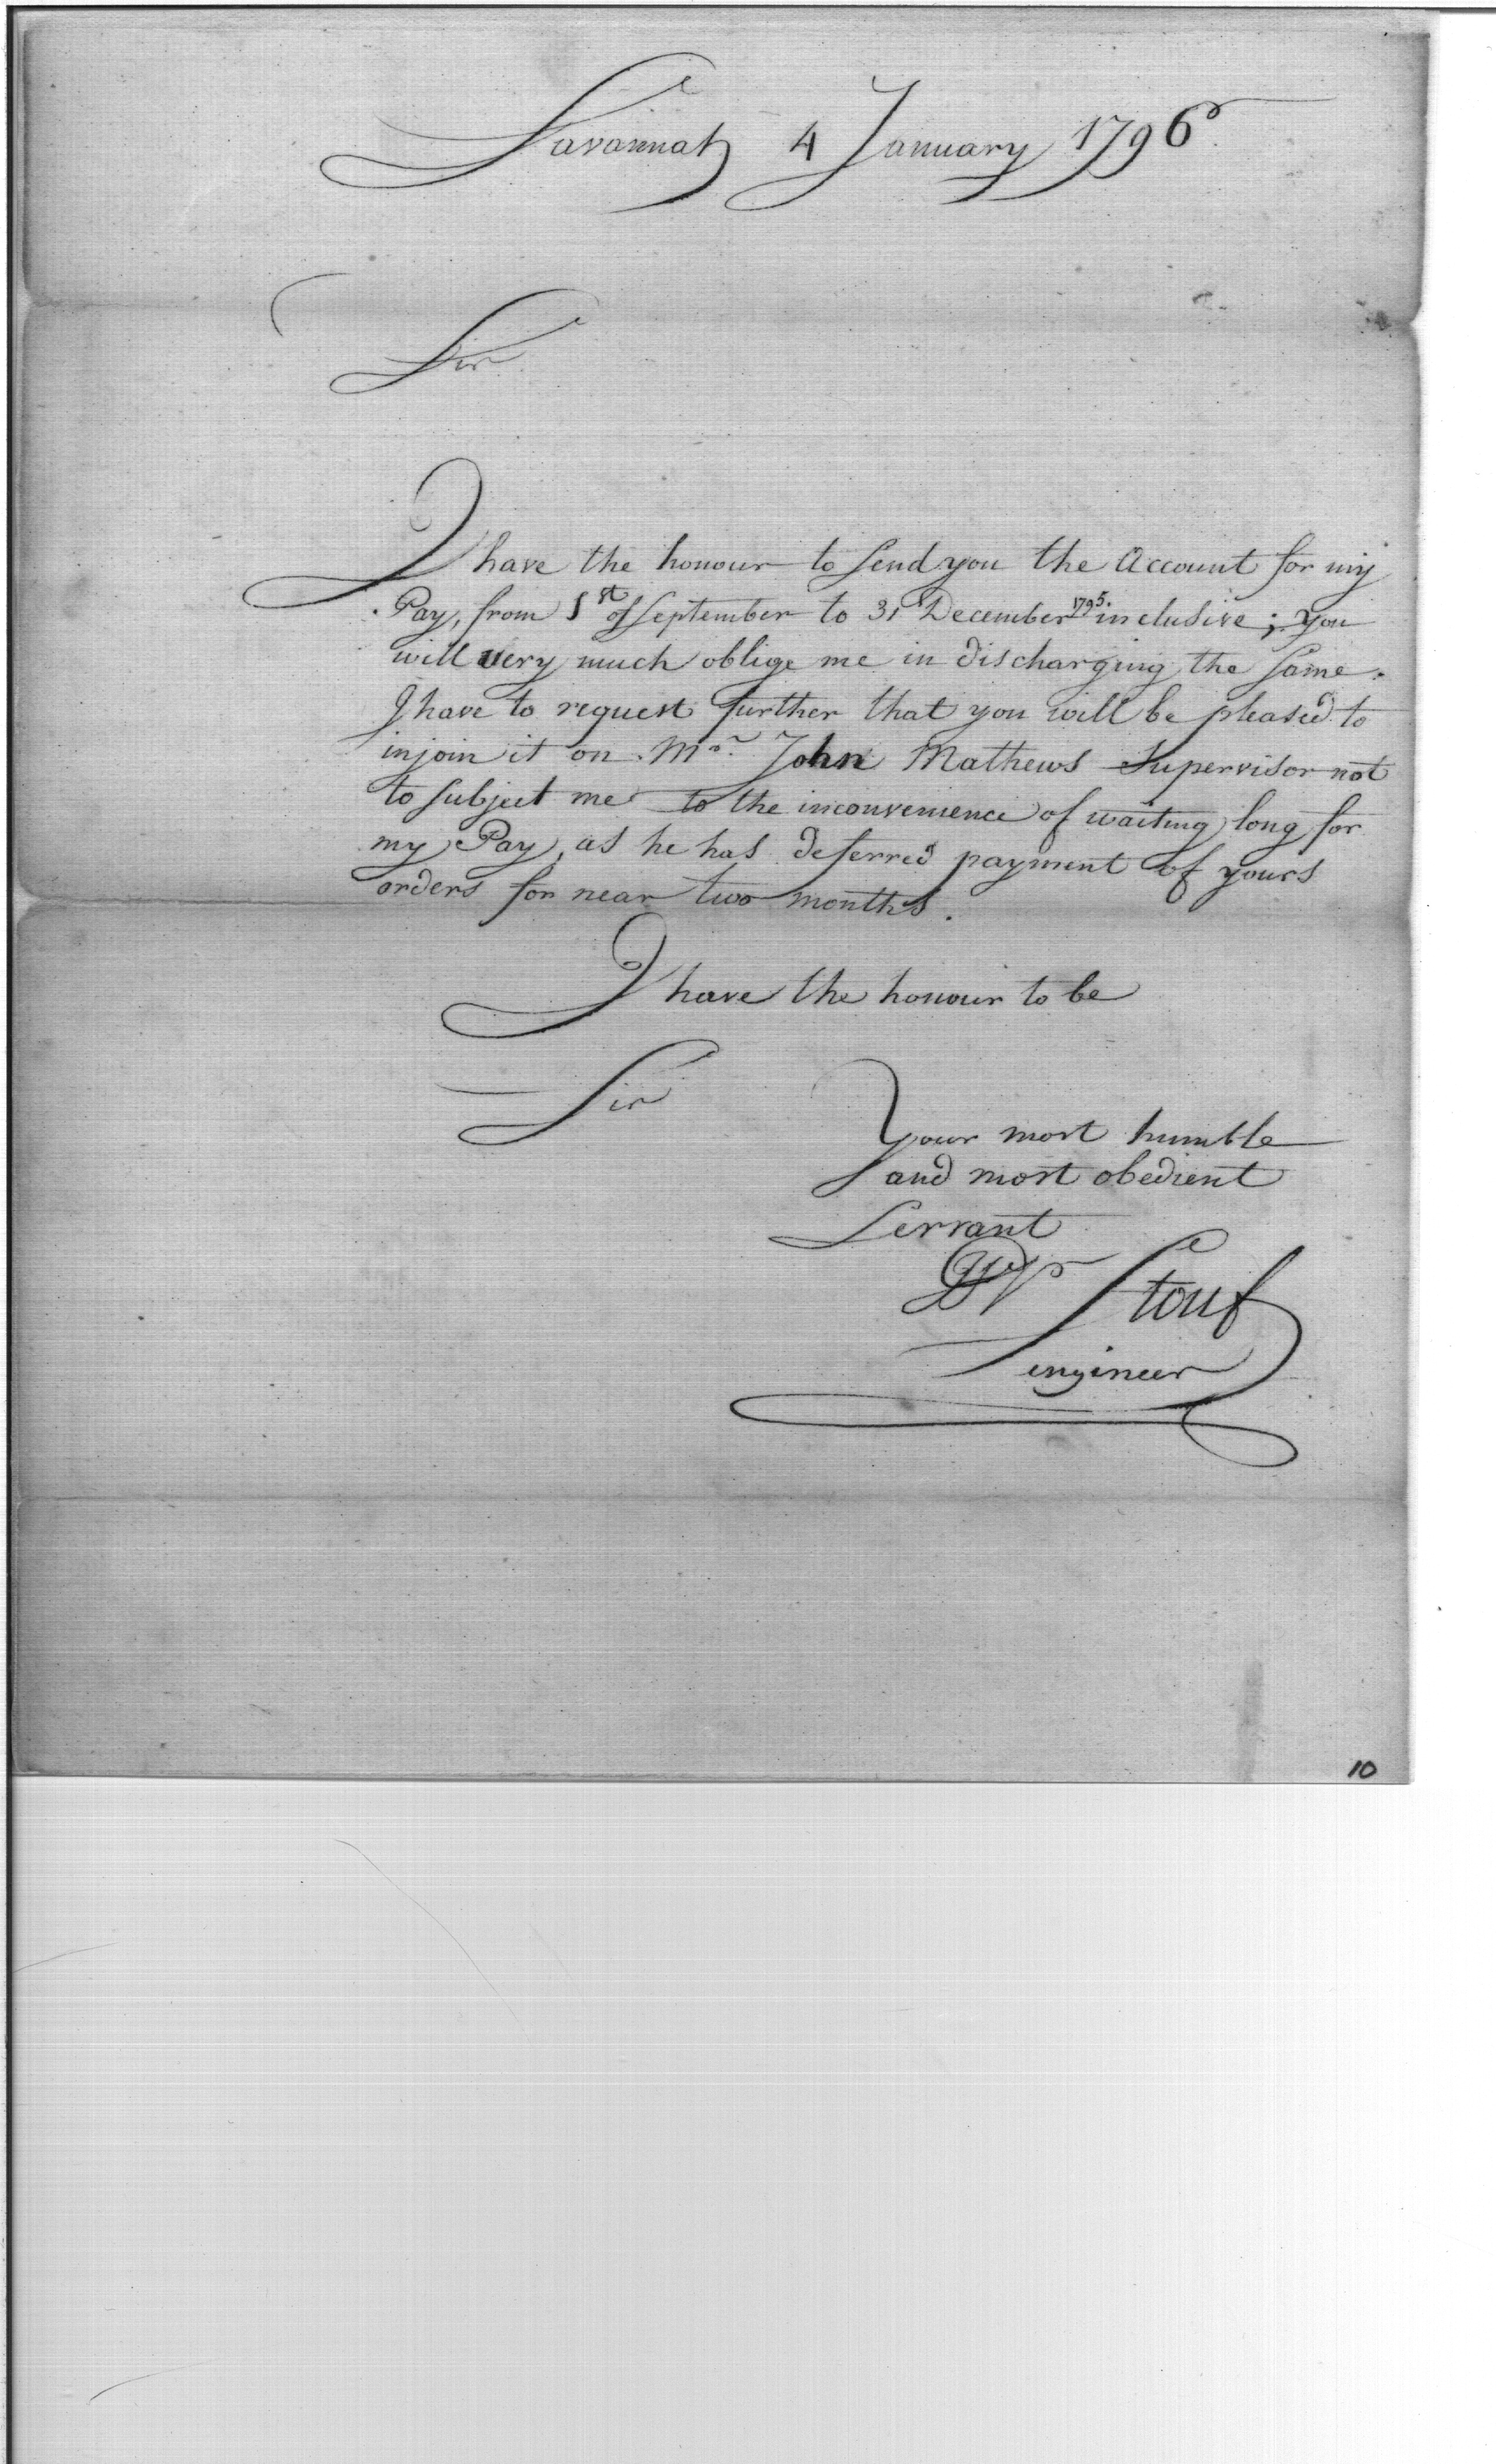 Savannah 4 January 1796
Sir
I have the honour to send you the Account for my
Pay, from 1st of September to 31 December 1795. inclusive; you
will very much oblige me in discharging the same.
I have to request further that you will be pleased to
injoin it on Mr. John Mathews Supervisor not
to subject me to the inconvenience of waiting long for
my Pay, as he has deferred payment of yours
orders for near two months.
I have the honour to be
Sir
Your most humble
and most obedient
Servant
Stouf
engineer
10